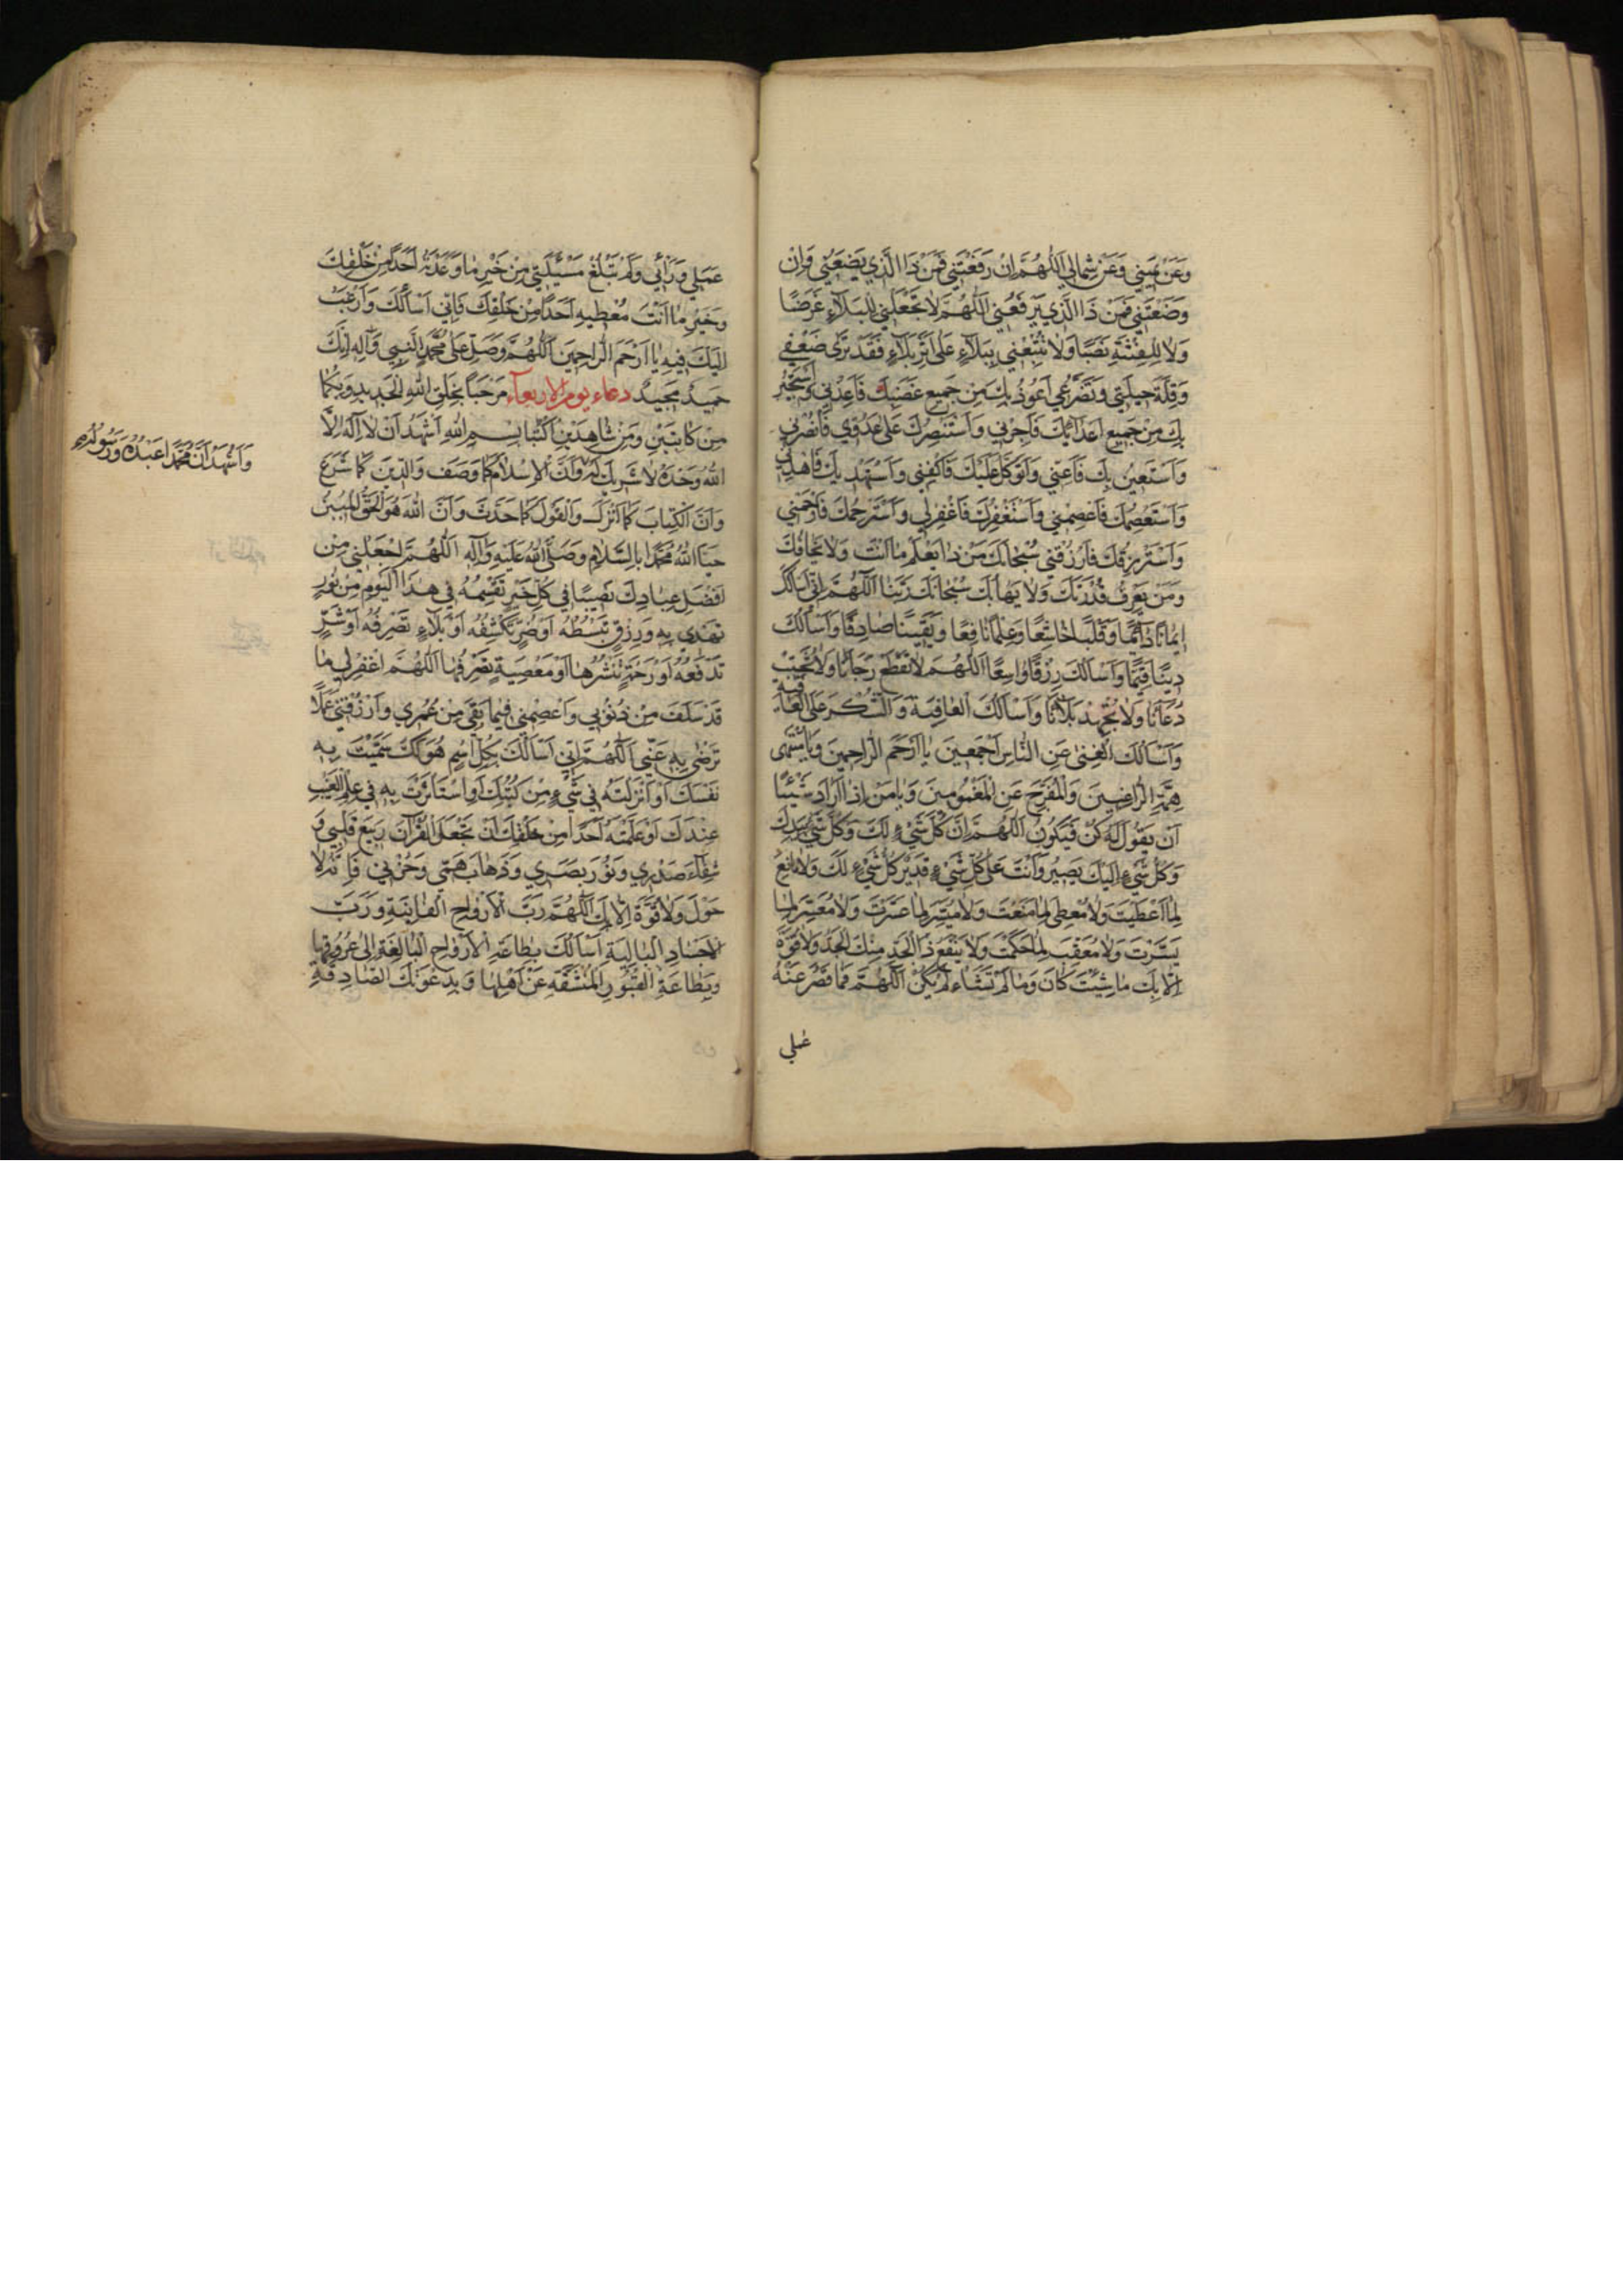 وَعَنْ يَمِينِي وَعَنْ شِمَالِي اَللّٰهُمَّ اِنْ رَفَعْتَنِي فَمَنْ ذَا الَّذِي يَضَعُنِي وَاِنْ
وَضَعْتَنِي فَمَنْ ذَا الَّذِي يَرْفَعُنِي اَللّٰهُمَّ لَا تَجْعَلْنِي لِلْبَلَاءِ غَرَضًا
وَلَا لِلْفِتْنَةِ نَصَبًا وَلَا تُتْبِعْنِي بِبَلَاءٍ عَلَى اَثَرِ بَلَاءٍ فَقَدْ تَرَى ضَعْفِي
وَقِلَّةَ حِيلَتِي وَتَضَرُّعِي اَعُوذُ بِكَ مِنْ جَمِيعِ غَضَبِكَ فَاَعِذْنِي وَاَسْتَجِيرُ
بِكَ مِنْ جَمِيعِ عَذَابِكَ فَاَجِرْنِي وَاَسْتَنْصِرُكَ عَلَى عَدُوِّي فَانْصُرْنِي
وَاَسْتَعِينُ بِكَ فَاَعِنِّي وَاَتَوَكَّلُ عَلَيْكَ فَاكْفِنِي وَاَسْتَهْدِيكَ فَاهْدِنِي
وَاَسْتَعْصِمُكَ فَاعْصِمْنِي وَاَسْتَغْفِرُكَ فَاغْفِرْلِي وَاَسْتَرْحِمُكَ فَارْحَمْنِي
وَاَسْتَرْزِقُكَ فَارْزُقْنِي سُبْحَانَكَ مَنْ ذَا يَعْلَمُ مَا اَنْتَ وَلَا يَخَافُكَ
وَمَنْ يَعْرِفُ قُدْرَتَكَ وَلَا يَهَابُكَ سُبْحَانَكَ رَبَّنَا اَللّٰهُمَّ اِنِّي اَسْاَلُكَ
اِيمَانًا دَائِمًا وَقَلْبًا خَاشِعًا وَعِلْمًا نَافِعًا وَيَقِينًا صَادِقًا وَاَسْاَلُكَ
دِينًا قَيِّمًا وَاَسْاَلُكَ رِزْقًا وَاسِعًا اَللّٰهُمَّ لَا تَقْطَعْ رَجَاءَنَا وَلَا تُخَيِّبْ
دُعَاءَنَا وَلَا تُجْهِدْ بَلَاءَنَا وَاَسْاَلُكَ الْعَافِيَةَ وَالشُّكْرَ عَلَى الْعَافِيَةِ
وَاَسْاَلُكَ الْغِنَى عَنِ النَّاسِ اَجْمَعِينَ يَا اَرْحَمَ الرَّاحِمِينَ وَيَا مُنْتَهَى
هِمَّةِ الرَّاغِبِينَ وَالْمُفَرِّجَ عَنِ الْمَغْمُومِينَ وَيَا مَنْ اِذَا اَرَادَ شَيْئًا
اَنْ يَقُولَ لَهُ كُنْ فَيَكُونُ اَللّٰهُمَّ اِنَّ كُلَّ شَيْءٍ لَكَ وَكُلَّ شَيْءٍ بِيَدِكَ
وَكُلُّ شَيْءٍ اِلَيْكَ يَصِيرُ وَاَنْتَ عَلَى كُلِّ شَيْءٍ قَدِيرٌ لَا مَانِعَ
لِمَا اَعْطَيْتَ وَلَا مُعْطِيَ لِمَا مَنَعْتَ وَلَا مُيَسِّرَ لِمَا عَسَّرْتَ وَلَا مُعَسِّرَ لِمَا
يَسَّرْتَ وَلَا مُعَقِّبَ لِمَا حَكَمْتَ وَلَا يَنْفَعُ ذَا الْجَدِّ مِنْكَ الْجَدُّ وَلَا قُوَّةَ
اِلَّا بِكَ مَا شِئْتَ كَانَ وَمَا لَمْ تَشَاءْ لَمْ يَكُنْ اَللّٰهُمَّ فَمَا قَصُرَ عَنْهُ
عَمَلِي
عَمَلِي وَرَاْيِي وَلَمْ تَبْلُغْ مَسْئَلَتِي مِنْ خَيْرِ مَا وَعَدْتَهُ اَحَدًا مِنْ خَلْقِكَ
وَخَيْرِ مَا اَنْتَ مُعْطِيهِ اَحَدًا مِنْ خَلْقِكَ فَاِنِّي اَسْاَلُكَ وَاَرْغَبُ
اِلَيْكَ فِيهِ يَا اَرْحَمَ الرَّاحِمِينَ اَللّٰهُمَّ وَصَلِّ عَلَى مُحَمَّدٍ النَّبِيِّ وَاٰلِهِ اِنَّكَ
حَمِيدٌ مَجِيدٌ دعاء يوم الاربعاء مَرْحَبًا بِخَلْقِ اللّٰهِ الْجَدِيدِ وَبِكُمَا
مِنْ كَاتِبَيْنِ وَمِنْ شَاهِدَيْنِ اُكْتُبَا بِسْمِ اللّٰهِ اَشْهَدُ اَنْ لَا اِلٰهَ اِلَّا
اللّٰهُ وَحْدَهُ لَا شَرِيكَ لَهُ وَاَنَّ الْاِسْلَامَ كَمَا وَصَفَ وَالدِّينَ كَمَا شَرَعَ
وَاَشْهَدُ اَنَّ مُحَمَّدًا عَبْدُهُ وَرَسُولُهُ
وَاَنَّ الْكِتَابَ كَمَا اَنْزَلَ وَالْقَوْلَ كَمَا حَدَّثَ وَاَنَّ اللّٰهَ هُوَ الْحَقُّ الْمُبِينُ
حَيَّا اللّٰهُ مُحَمَّدًا بِالسَّلَامِ وَصَلَّى اللّٰهُ عَلَيْهِ وَاٰلِهِ اَللّٰهُمَّ اجْعَلْنِي مِنْ
اَفْضَلِ عِبَادِكَ نَصِيبًا فِي كُلِّ خَيْرٍ تَقْسِمُهُ فِي هٰذَا الْيَوْمِ مِنْ نُورٍ
تَهْدِي بِهِ وَرِزْقٍ تَبْسُطُهُ اَوْ ضُرٍّ تَكْشِفُهُ اَوْ بَلَاءٍ تَصْرِفُهُ اَوْ شَرٍّ
تَدْفَعُهُ اَوْ رَحْمَةٍ تَنْشُرُهَا اَوْ مَعْصِيَةٍ تَصْرِفُهَا اَللّٰهُمَّ اغْفِرْلِي مَا
قَدْ سَلَفَ مِنْ ذُنُوبِي وَاعْصِمْنِي فِيمَا بَقِيَ مِنْ عُمُرِي وَارْزُقْنِي عَمَلًا
تَرْضَى بِهِ عَنِّي اَللّٰهُمَّ اِنِّي اَسْاَلُكَ بِكُلِّ اسْمٍ هُوَ لَكَ سَمَّيْتَ بِهِ
نَفْسَكَ اَوْ اَنْزَلْتَهُ فِي شَيْءٍ مِنْ كُتُبِكَ اَوِ اسْتَاْثَرْتَ بِهِ فِي عِلْمِ الْغَيْبِ
عِنْدَكَ اَوْ عَلَّمْتَهُ اَحَدًا مِنْ خَلْقِكَ اَنْ تَجْعَلَ الْقُرْآنَ رَبِيعَ قَلْبِي وَ
شِفَاءَ صَدْرِي وَنُورَ بَصَرِي وَذَهَابَ هَمِّي وَحُزْنِي فَاِنَّهُ لَا
حَوْلَ وَلَا قُوَّةَ اِلَّا بِكَ اَللّٰهُمَّ رَبَّ الْاَرْوَاحِ الْفَانِيَةِ وَرَبَّ
الْاَجْسَادِ الْبَالِيَةِ اَسْاَلُكَ بِطَاعَةِ الْاَرْوَاحِ الْبَالِغَةِ اِلَى عُرُوقِهَا
وَبِطَاعَةِ الْقُبُورِ الْمُنْشَقَّةِ عَنْ اَهْلِهَا وَبِدَعْوَتِكَ الصَّادِقَةِ